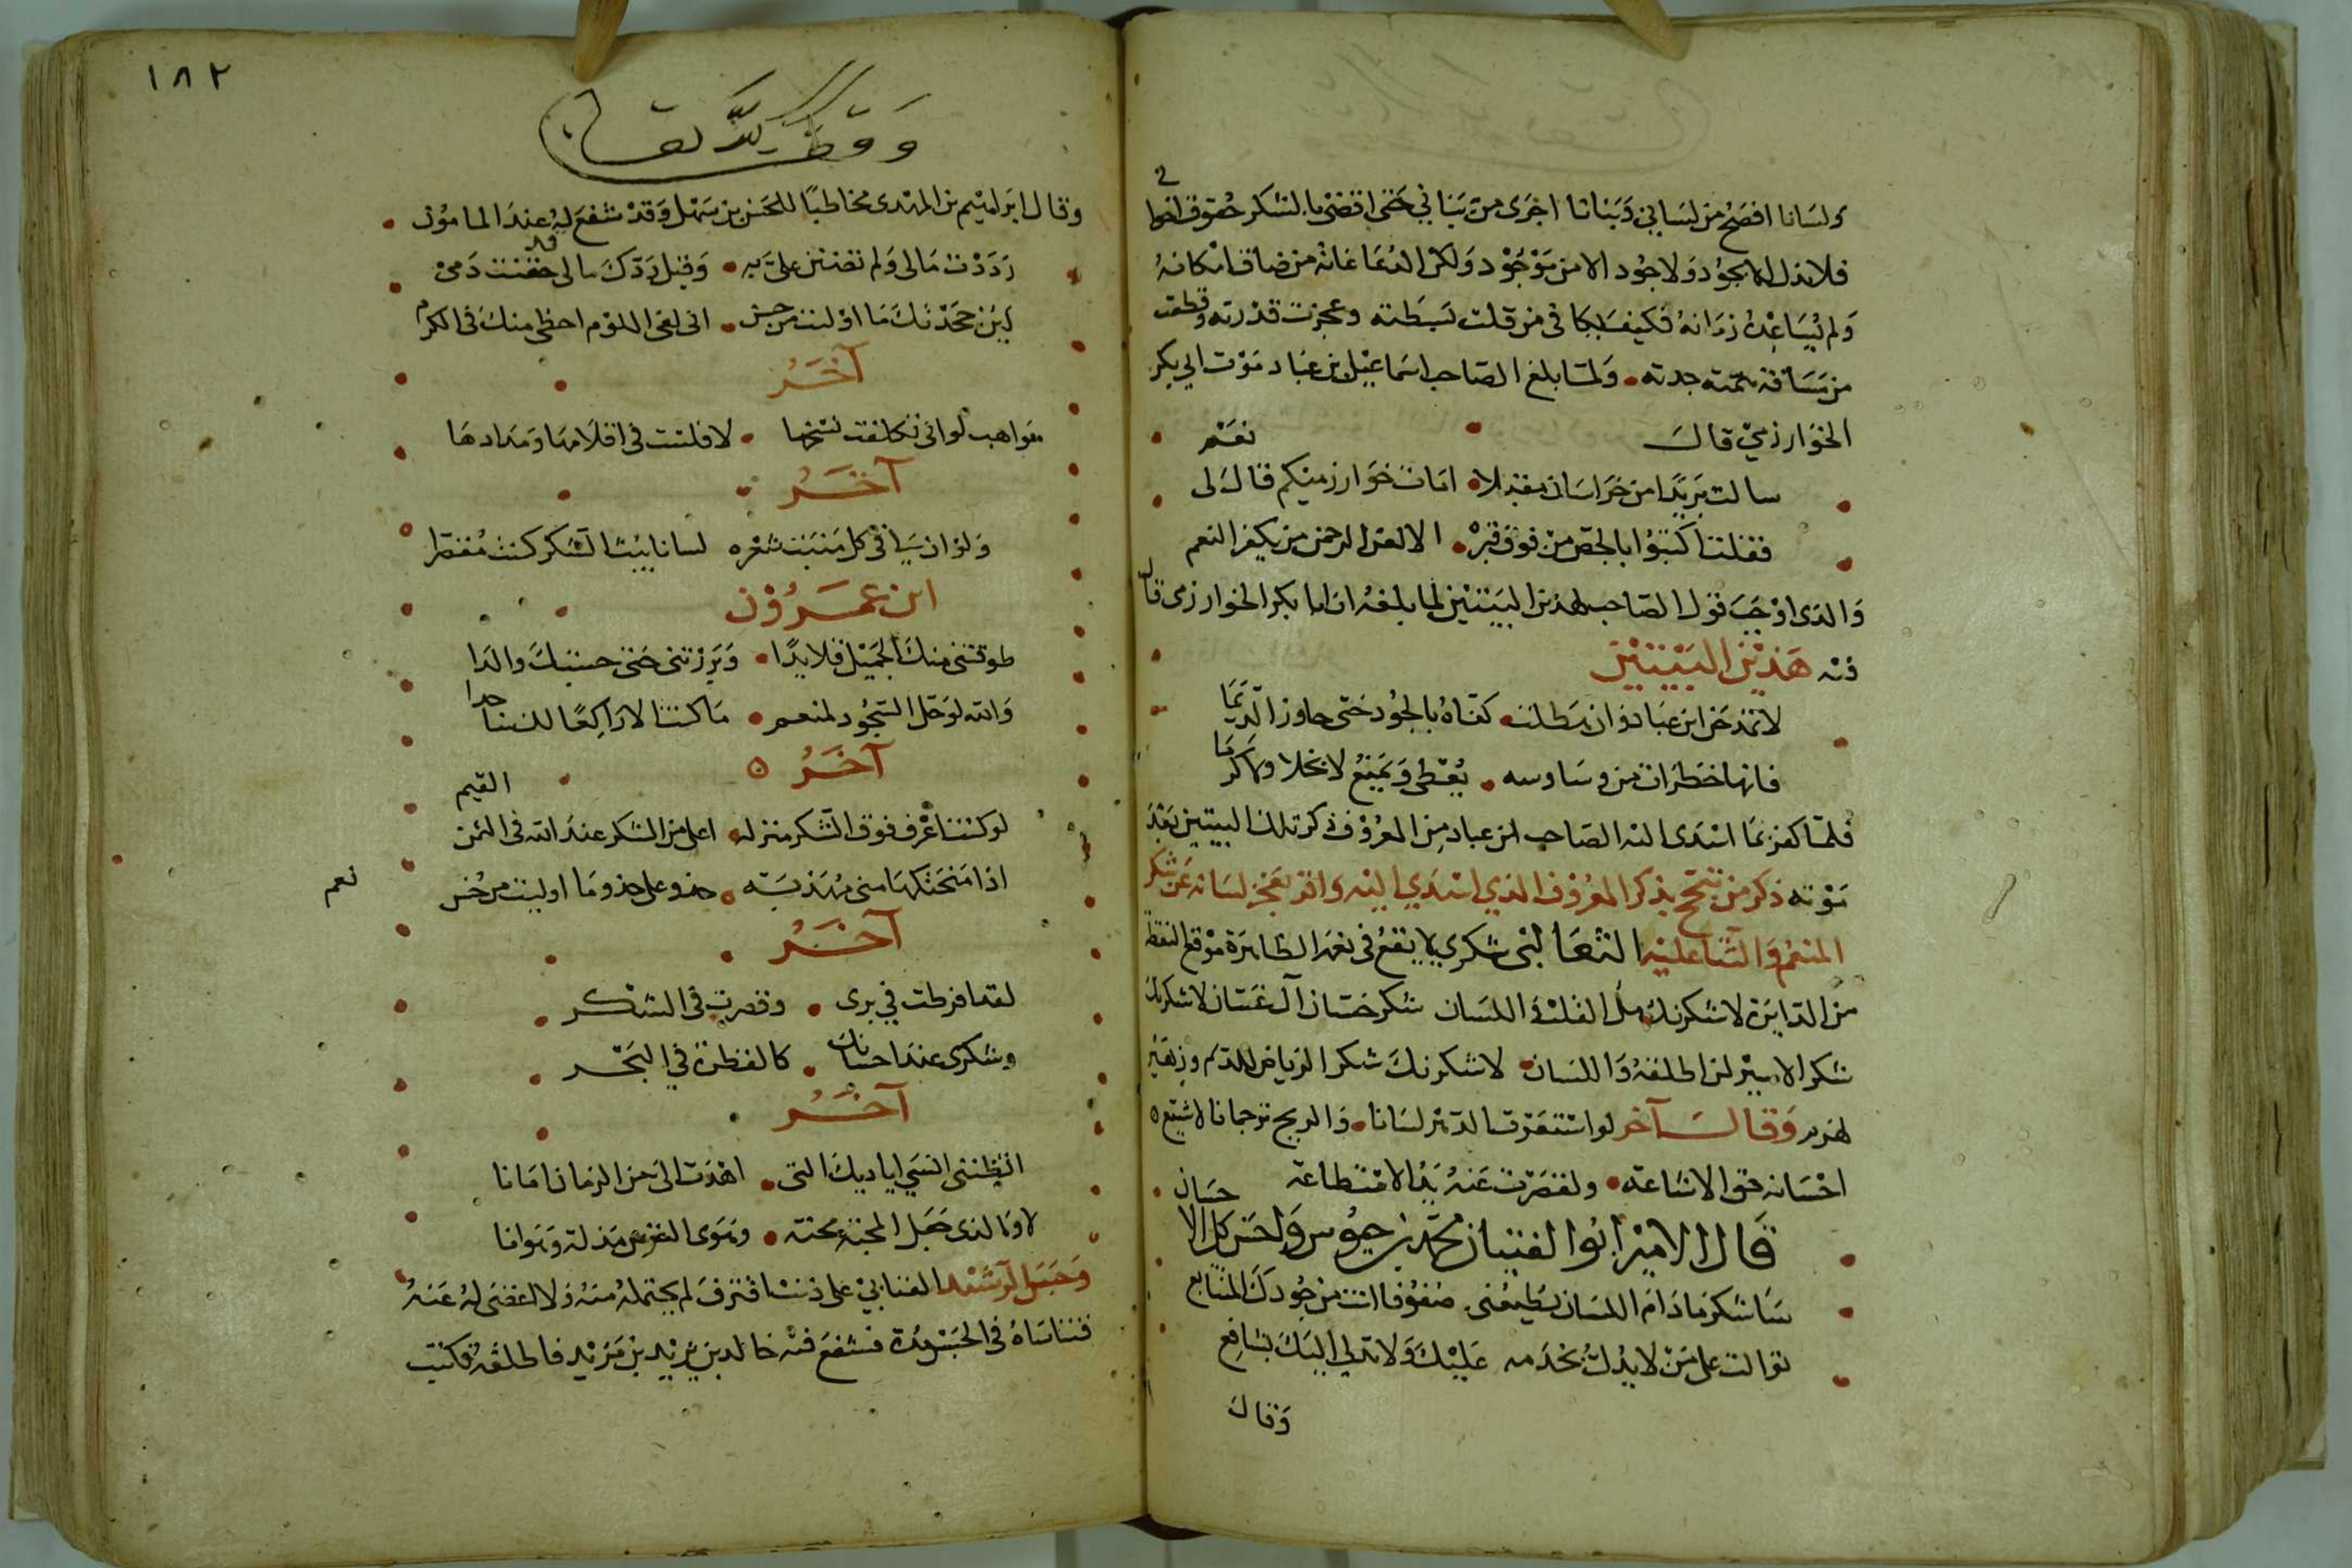 ولسانا افصح من لساني وبنانا اجرى من بناني حتى اقضي بالشكر حقوق
فلا بذل الا بجود ولا جود الا من موجود ولكن الدعا غاية من ضاق امكانه
ولم يساعده زمانه فكيف من قلت بسطته وعجزت قدرته وقطعت
من مسافة همته جدته ولما بلغ الصاحب اسماعيل بن عباد موت ابي بكر
الخوارزمي قال نعم
سالت بريدا من خراسان مقبلا امات خوارزميكم قال لي
فقلت اكتبوا بالجص من فوق قبره الا لعن الرحمن من يكفر النعم
والذي اوجب قول الصاحب لهذين البيتين لما بلغه ان ابا بكر الخوارزمي قال
فيه هذين البيتين
لا تمدحن ابن عباد وان هطلت كفاه بالجود حتى جاوز الديما
فانها خطرات من وساوسه يعطي ويمنع لا بخلا ولا كرما
فلما كفر بما اسدى اليه الصاحب ابن عباد من المعروف ذكر تلك البيتين بعد
موته ذكر من تبجح بذكر المعروف الذي اسدي اليه واقر بعجز لسانه عن شكر
المنعم والثنا عليه الثعالبي شكري لا يقع في نعمه الظاهرة موقع النقطة
من الدايرة لاشكرنك ملء القلب واللسان شكر حسان آل غسان لاشكرنك
شكر الاسير لمن اطلقه واللسان لاشكرنك شكر الرياض للديم وزهير
لهرم وقال آخر لو استغرقت الدهر لسانا والريح ترجمانا لاشيع
احسانه حق الاشاعة ولقصرت عنه يد الاستطاعة
قال الامير ابو الفتيان محمد بن حيوس واحسن كل الاحسان
ساشكر ما دام اللسان يطيعني صنوفا اتت من جودك المتتابع
توالت على من لا يدل بخدمه عليك ولا يدلي اليك بشافع
وقال
١٨٢
وقال ابراهيم بن المهدي مخاطبا للحسن بن سهل وقد شفع له عند المامون
رددت مالي ولم تضنن علي به وقبل ردك مالي قد حقنت دمي
لين جحدتك ما اوليت من حسن اني لفي اللوم احظى منك في الكرم
آخر
مواهب لو اني تكلفت نسخها لافلست في اقلامها ومدادها
آخر
ولو ان لي في كل منبت شعره لسانا يبث الشكر كنت مقصرا
ابن عمرون
طوقتني منك الجميل قلايدا وبررتني حتى حسبتك والدا
والله لو حل السجود لمنعم ما كنت الا راكعا لك ساجدا
آخر
لو كنت اعرف فوق الشكر منزلة اعلى من الشكر عند الله في الثمن القيم
اذا منحتكها مني مهذبة حذو على حذو ما اوليت من حسن نعم
آخر
لقد افرطت في بري وقصرت في الشكر
وشكري عند احسانك كالقطرة في البحر
آخر
اتظنني انسى اياديك التي اهدت الي من الزمان امانا
لا والذي جعل المحبة محنة وهوى مذلة وهوانا
وحبس الرشيد العتابي على ذنب اقترف لم يحتمله منه ولا اغضى له عنه
فتناساه في الحبس مدة فشفع فيه خالد بن يزيد بن مزيد فاطلقه فكتب